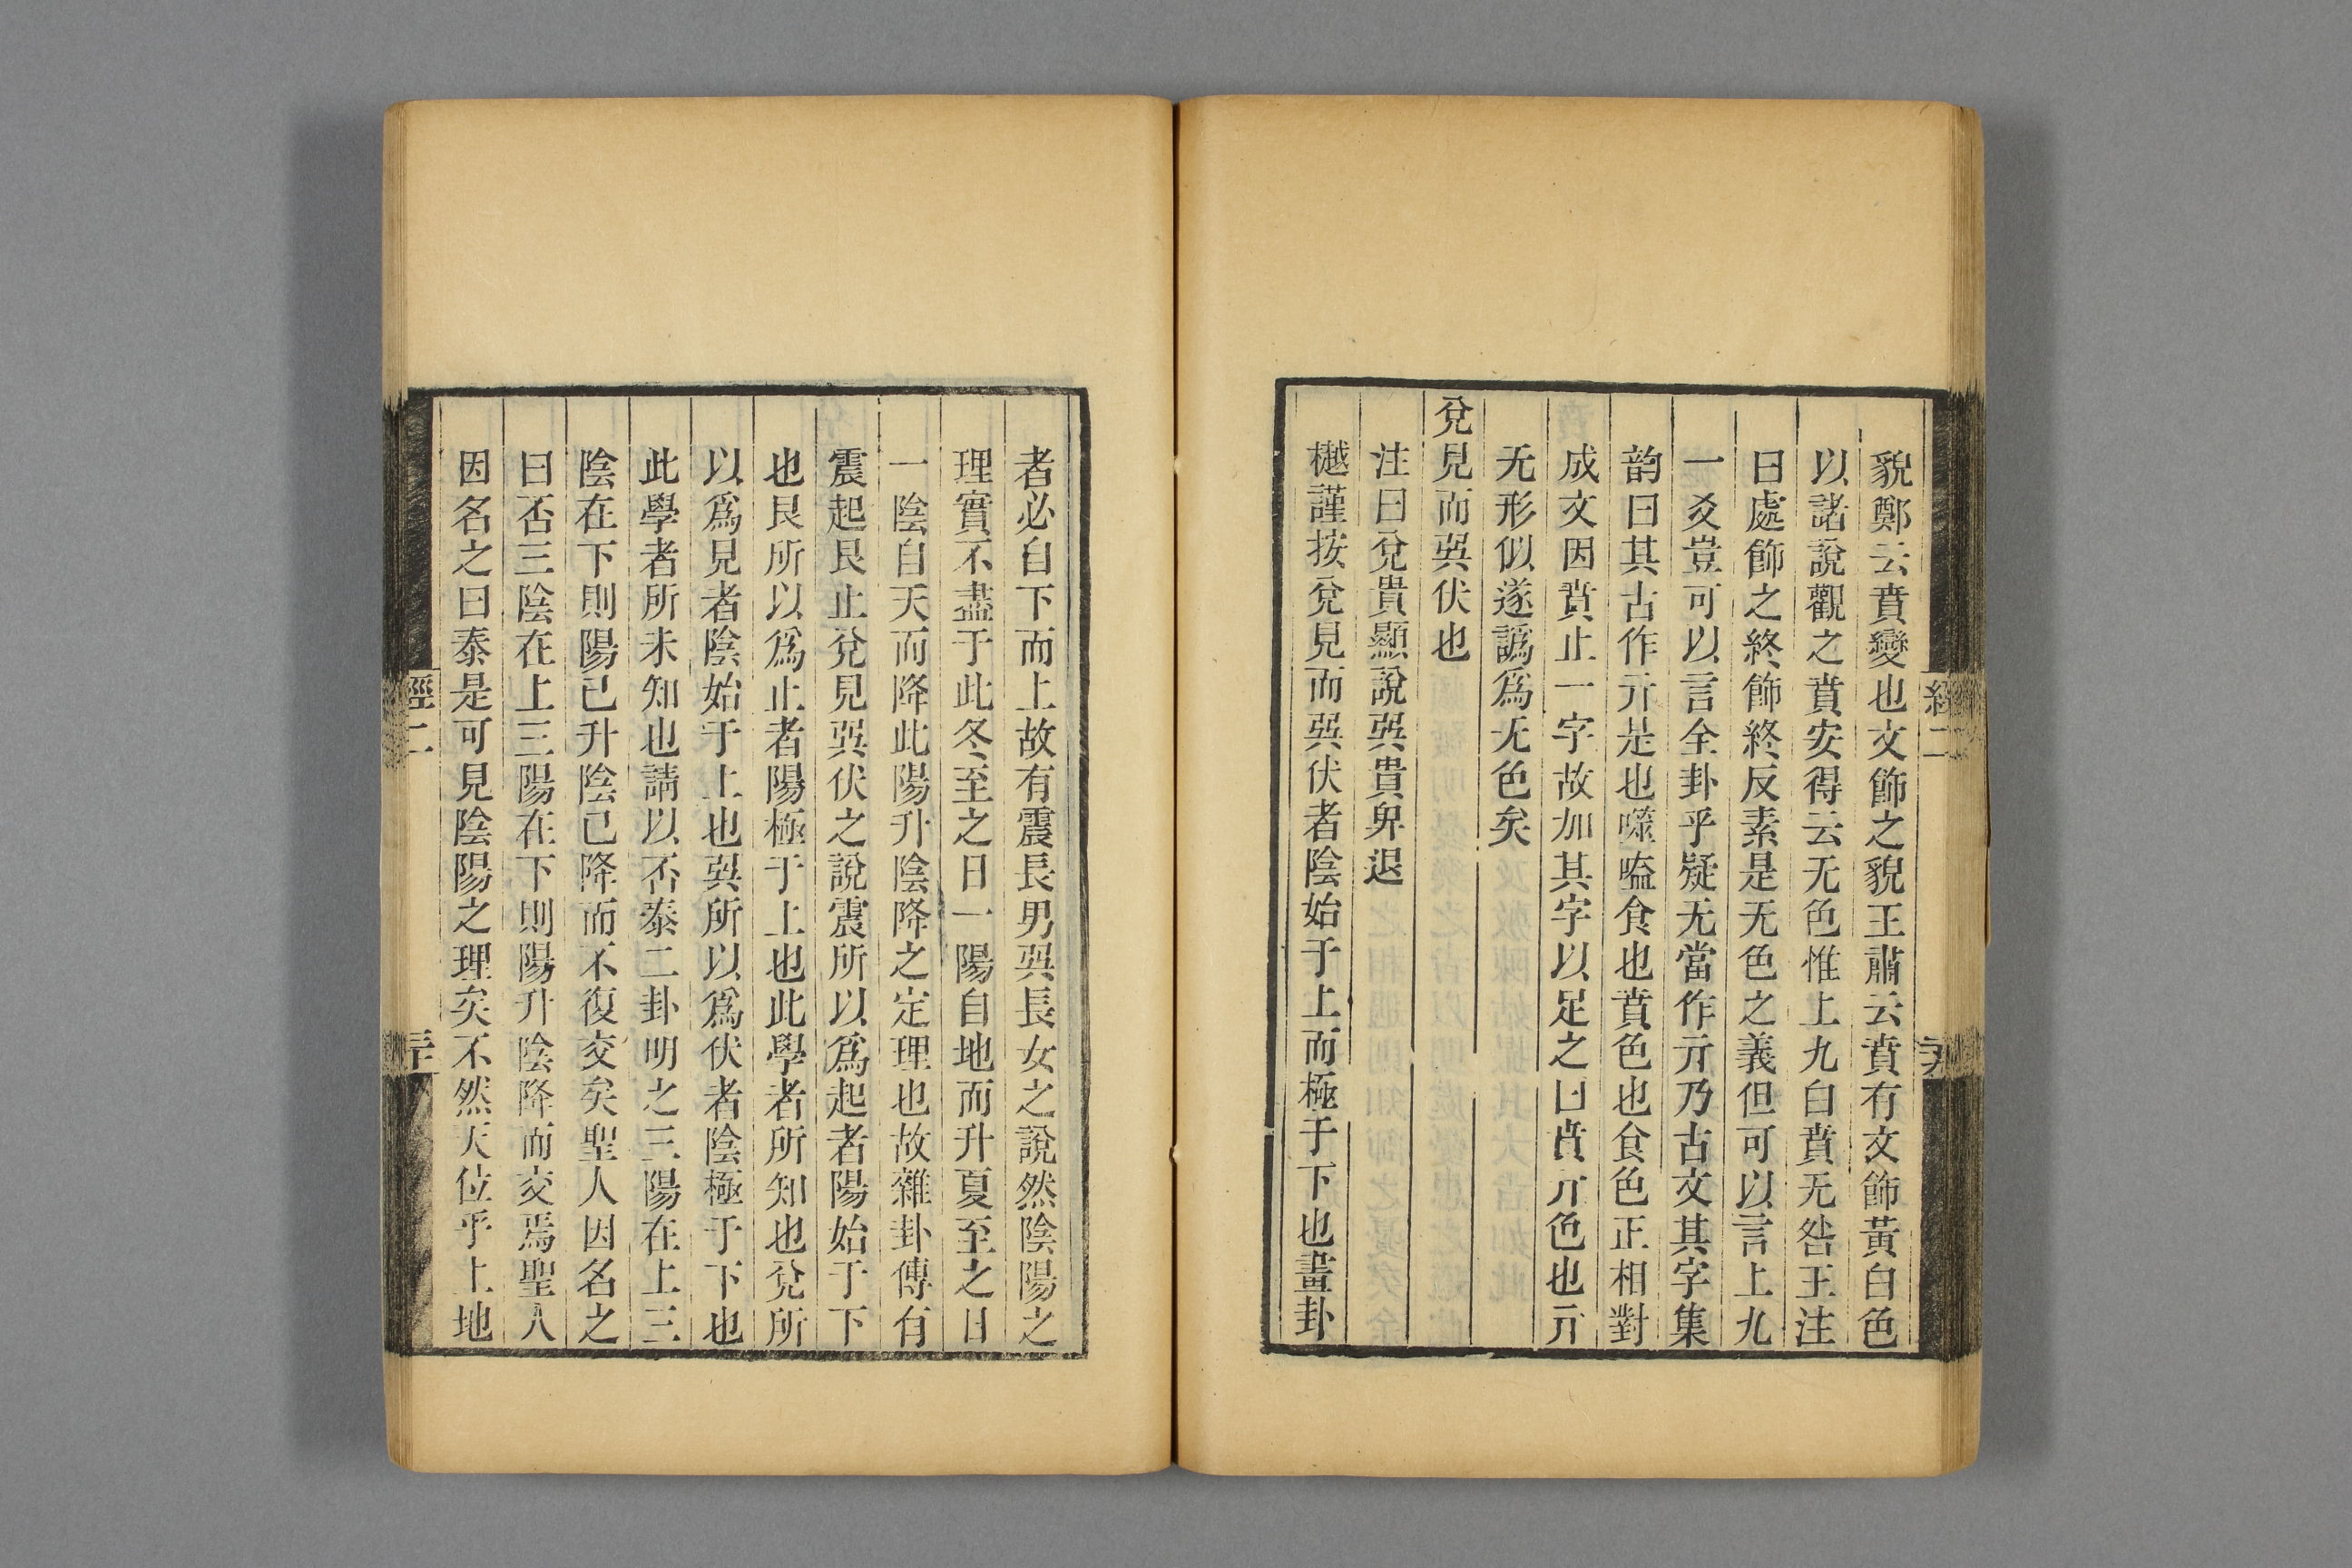 貌鄭云賁變也文飾之貌王肅云賁有文飾黃白色
以諸說觀之賁安得云无色惟上九白賁无咎王注
曰處飾之終飾終反素是无色之義但可以言上九
一爻豈可以言全卦乎疑无當作亓乃古文其字集
韵曰其古作亓是也噬嗑食也賁色也食色正相對
成文因賁止一字故加其字以足之曰賁亓色也亓
无形似遂譌爲无色矣
兌見而巺伏也
注曰兌貴顯說巺貴卑退
樾謹按兌見而巺伏者陰始于上而極于下也畫卦
經二
者必自下而上故有震長男巺長女之說然陰陽之
理實不盡于此冬至之日一陽自地而升夏至之日
一陰自天而降此陽升陰降之定理也故雜卦傳有
震起艮止兌見巺伏之說震所以爲起者陽始于下
也艮所以爲止者陽極于上也此學者所知也兌所
以爲見者陰始于上也巺所以爲伏者陰極于下也
此學者所未知也請以否泰二卦明之三陽在上三
陰在下則陽已升陰已降而不復交矣聖人因名之
曰否三陰在上三陽在下則陽升陰降而交焉聖人
因名之曰泰是可見陰陽之理矣不然天位乎上地
經二
三十